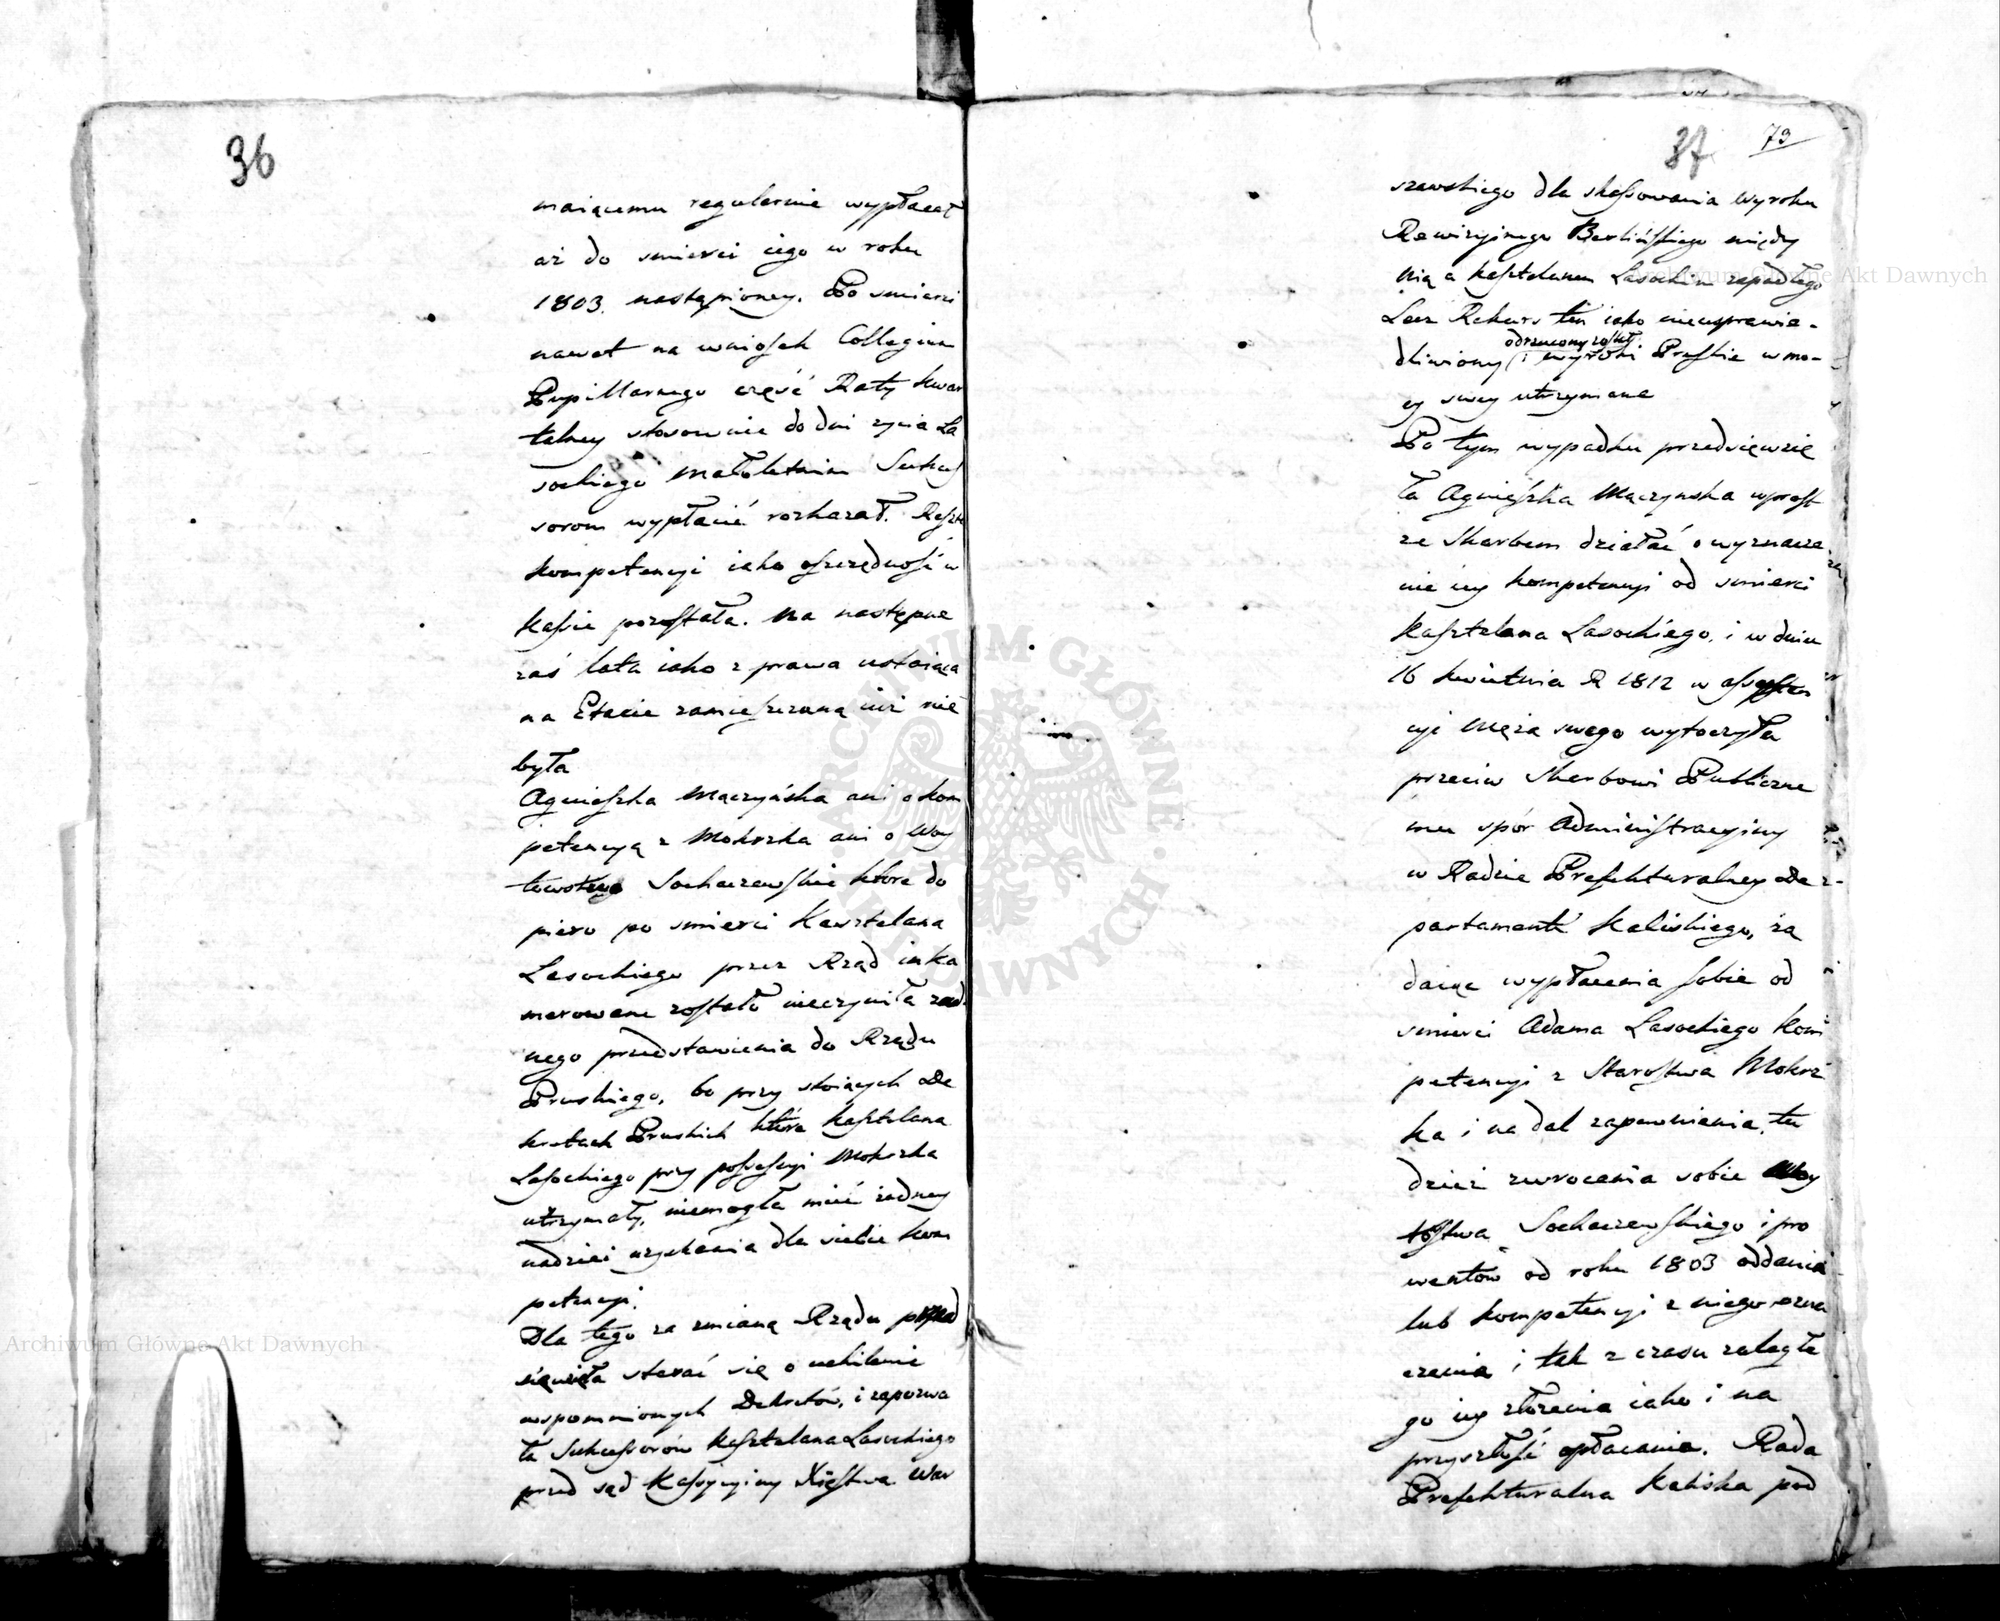 36
maiącemu regularnie wypłacał
aż do smierci iego w roku
1803. nastąpioney. Po smierci
nawet na wniosek Collegium
Pupillarnego część Raty kwar
talney stosownie do dni zycia La
sockiego małoletnim Sukces
sorom wypłacić rozkazał. Reszta
kompetencyi iako oszczędność w
kassie pozostała. Na następne
zaś lata iako z prawa ustaiąca
na Etacie zamieszczoną iuż nie
była
Agnieszka Mączyńska ani o kom
petencyą z Mokrzka ani o Woy
towstwo Sochaczewskie które do
piero po smierci Kasztelana
Lasockiego przez Rząd inka
merowane zostało nieczyniła żad
nego przedstawienia do Rządu
Pruskiego, bo przy stoiących De
kretach Pruskich które Kasztelana
Lasockiego przy possessyi Mokrzka
utrzymały, niemogła mieć żadney
nadziei uzyskania dla siebie kom
petencyi.
Dla tego za zmianą Rządu przed
sięwzięła starać się o uchilenie
wspomnionych Dekretów, i zapozwa
ła Sukcessorów Kasztelana Lasockiego
przed sąd Kassacyiny Xięstwa War
37 73
szawskiego dla skassowania Wyroku
Rewizyinego Berlińskiego między
Nią a Kasztelanem Lasockim zapadłego
Lecz Rekurs ten iako nieusprawie-
odrzucony został
dliwiony i wyroki Pruskie w mo-
cy swey utrzymane
Po tym wypadku przedsięwzię
ła Agnieszka Mączynska wprost
ze Skarbem działać o wyznacze
nie iey kompetencyi od smierci
Kasztelana Lasockiego, i w dniu
16 kwietnia R 1812 w assysten
cyi Męża swego wytoczyła
przeciw Skarbowi Publiczne
mu spór Administracyiny
w Radzie Prefekturalney De
partamentu Kaliskiego, żą
daiąc wypłacenia sobie od
smierci Adama Lasockiego kom
petencyi z Starostwa Mokrz
ka i na dal zapewnienia, tu
dzież zwrocenia sobie Woy
tostwa Sochaczewskiego i pro
wentów od roku 1803 oddania
lub kompetencyi z niego ozna
czenia i tak z czasu zaległe
go iey złożenia iako i na
przyszłość opłacania. Rada
Prefekturalna Kaliska pod
Archiwum Główne Akt Dawnych
Archiwum Główne Akt Dawnych
ARCHIWUM GŁÓWNE AKT DAWNYCH